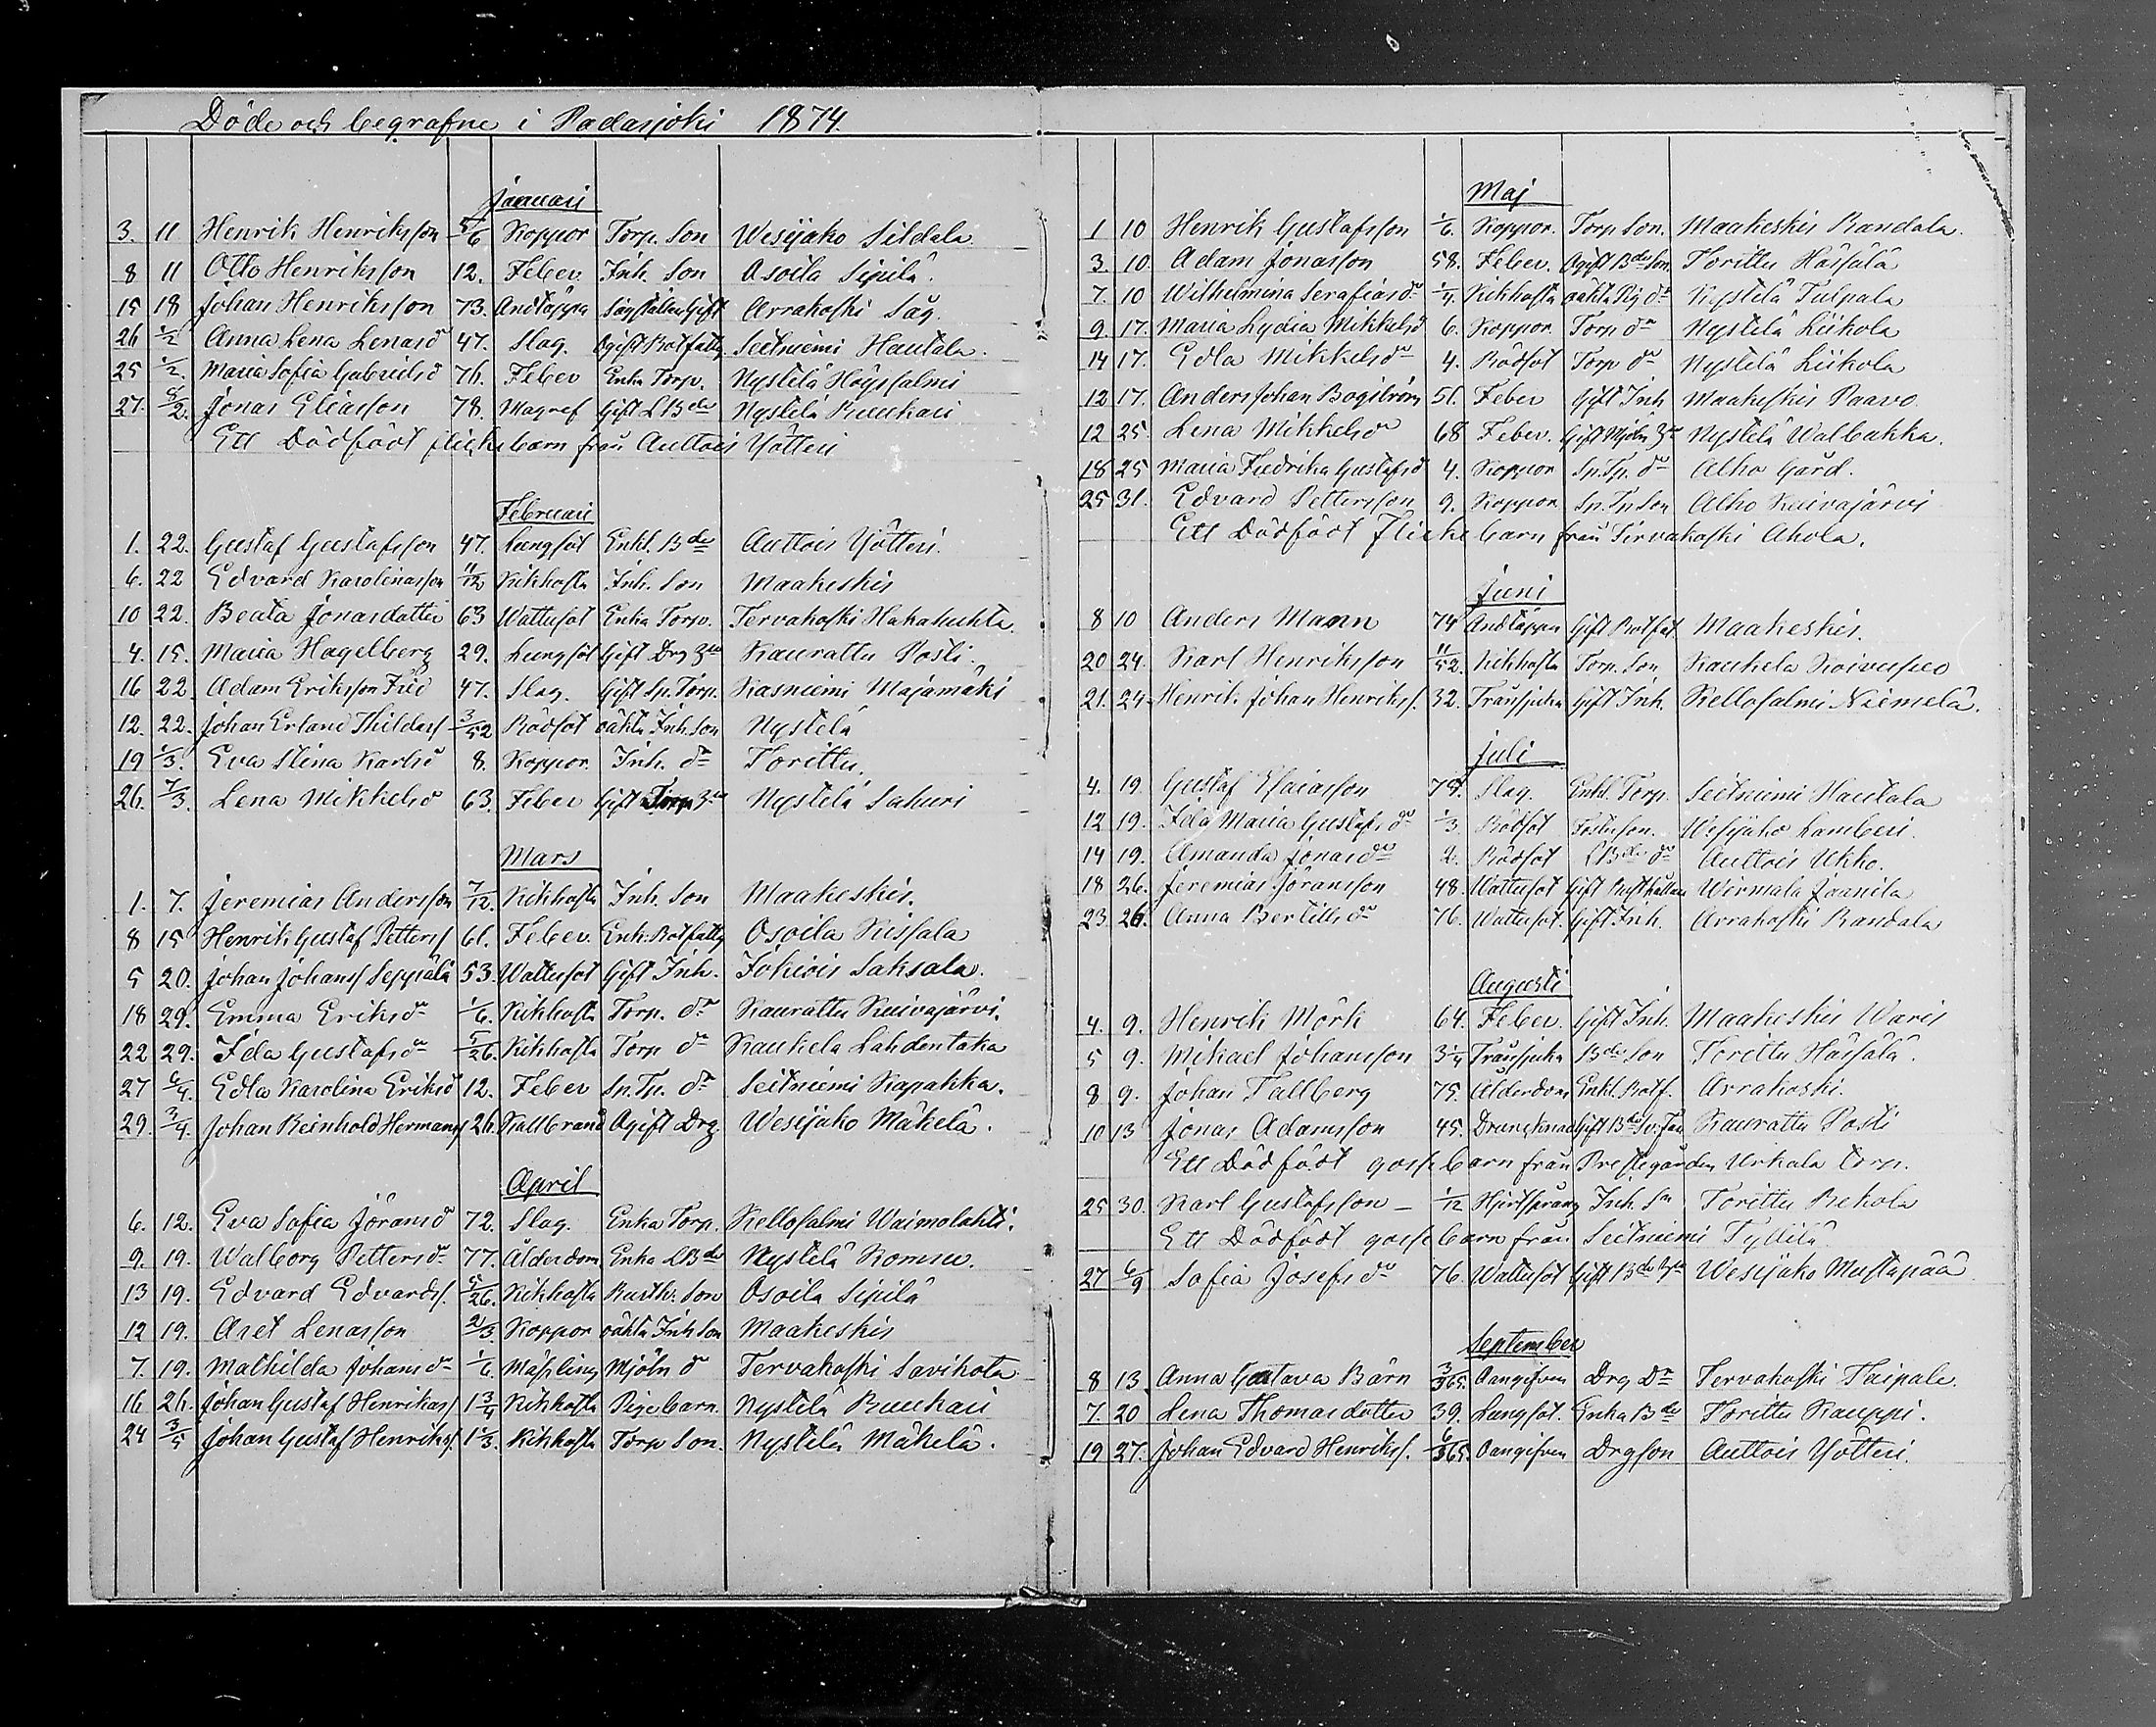 Döde och begrafne i Padasjoki 1874.
Januari
3. 11 Henrik Henriksson 5/6 Koppor Torp. Son Wesijako Sildala
8 11 Otto Henriksson 12. Feber. Inh. Son Osoila Sipilä.
15 18 Johan Henriksson 73. Andtäppa Gift Arrakoski Såg.
26 1/2 Anna Lena Lenasd 47. Slag. Ogift Rotfattig Seitniemi Hautala.
25 1/2. Maria Sofia Gabrielsd 76. Feber Enka Torp. Nystelä Höyssalmi
27. 8/2. Jonas Eliasson 78. Magref Gift LBde Nystelä Ruuhari
Ett Dödfödt flickebarn från Auttois Yötteri
Februari
1. 22. Gustaf Gustafsson 47. Lungsot Enkl. Bde Auttois Yötteri.
6. 22 Edvard Karolinasson 11/12 Kikhosta Inh. Son Maakeskis
10 22. Beata Jonasdotter 63 Wattusot Enka Torp. Tervakoski Hakakuhta.
4. 15. Maria Hagelberg 29. Lungsot Gift Drg Kaurattu Posti.
16 22 Adam Eriksson Frid 47. Slag. Gift Sp. Torp. Kasniemi Majamäki
12. 22. Johan Erland Thildas 3/52 Rödsot oäkta Inh. son Nystelä
19 1/3. Eva Stina Karlsd 8. Koppor. Inh. dr Torittu.
26. 7/3. Lena Mikkelsd 63. Feber Gift Torp Nystelä Sahuri
Mars
1. 7. Jeremias Andersson 7/12. Kikhosta Inh. Son Maakeskis.
8 15 Henrik Gustaf Petters 61. Feber. Enk. Rotfattig Osoila Kissala
5 20. Johan Johans Seppälä 53. Wattusot Gift Inh. Jokiois Saksala.
18 29. Emma Eriksdr 1/6. Kikhosta Torp. dr Kaurattu Kuivajärvi.
22 29. Ida Gustafsdr 5/26. Kikhosta Torp dr Kaukela Lahdentaka
27 6/4. Edla Karolina Eriksd 12. Feber Sp. Tp. dr Seitniemi Kapakka.
29. 3/4. Johan Reinhold Hermans 26. Kallbrand Ogift Drg Wesijako Mäkelä.
April
6. 12. Eva Sofia Jöransd 72. Slag. Enka Torp. Kellosalmi Waimolahti.
9. 19. Walborg Pettersdr 77. Ålderdom Enka LBde Nystelä Romsu.
13 19. Edvard Edvards. 5/26. Kikhosta Rusth. Son Osoila Sipilä
12 19. Axel Lenasson 2/3. Koppor oäkta Inh Son Maakeskis
7. 19. Mathilda Johansdr 1/6. Mässling Mjöln d Tervakoski Savikota
16 26. Johan Gustaf Henrikas 1 3/4 Kikhosta Pigebarn. Nystelä Ruuhari
24 3/5 Johan Gustaf Henriks. 1 1/3. Kikhosta Torp Son. Nystelä Mäkelä.
Maj
1 10 Henrik Gustafsson 1/6. Koppor. Torp Son. Maakeskis Randala.
3. 10 Adam Jonasson 58. Feber. Ogift Bde Son. Torittu Hässälä
7. 10 Wilhelmina Serafiasdr 1/4. Kikhosta oäkta Pig dr Nystelä Tulpala
9. 17. Maria Lydia Mikkelsd 6. Koppor Torp dr Nystelä Liikola
14 17. Edla Mikkelsdr 4. Rödsot Torp dr Nystelä Liikola
12 17. Anders Johan Bogström 51. Feber Gift Inh Maakeskis Paavo
12 25. Lena Mikkelsdr 68 Feber. Gift Mjöln Nystelä Walbakka.
18 25 Maria Fredrika Gustafsd 4. Koppor Sp. Tp. dr Alho Gård.
25 31. Edvard Pettersson 9. Koppor Sp. Tp Son Alho Kuivajärvi
Ett Dödfödt Flickebarn från Tervakoski Ahola.
Juni
8 10 Anders Mann 74 Andtäppa Gift Rotfat Maakeskis.
20 24. Karl Henriksson 11/52. Kikhosta Torp. Son Kaukela Koivusuo
21. 24. Henrik Johan Henriks. 32. Trånsjuka Gift Inh. Kellosalmi Niemelä.
Juli
4. 19 Gustaf Esaiasson 75. Slag. Enkl. Torp. Seitniemi Hautala
12 19. Ida Maria Gustafsdr 1/3 Rödsot Wesijako Lamberi.
14 19. Amanda Jonasdr 2. Rödsot LBde dr Auttois Ukko.
18 26. Jeremias Jöransson 48. Wattusot Gift Rusthållare Wirmala Jaanila
23. 26. Anna Bertillsdr 76. Wattusot. Gift Inh. Arrakoski Randala
Augusti
4. 9. Henrik Mörk 64. Feber. Gift Inh. Maakeskis Waris
5 9. Mikael Johansson 3 1/4 Trånsjuka Bde Son Torittu Hässälä.
8 9. Johan Tallberg 75. Ålderdom Enkl. Rotf. Arrakoski.
10 13 Jonas Adamsson 45. Drunknad Gift Kaurattu Posti
Ett Dödfödt gossebarn från Prestegården Urkala torp.
25 30. Karl Gustafsson — 1/12 Hjertsprång Inh. Sn Torittu Rekola
Ett Dödfödt gossebarn från Seitniemi Tyllilä
27 6/9 Sofia Josefsdr 76. Wattusot Gift Bde Wesijako Mustapää
September
8 13. Anna Gustava Bärn 3/365. Oangifven Drg Dr Tervakoski Taipale.
7. 20 Lena Thomasdotter 39. Lungsot. Enka Bde Torittu Kauppi.
19 27. Johan Edvard Henriks. 6/365. Oangifven Drgson Auttois Yötteri.